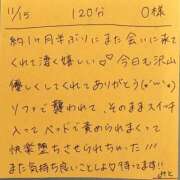 11/15 120分 O様
約1ヶ月半ぶりにまた会いに来て
くれて凄く嬉しい♡♡ 今日も沢山
優しくしてくれてありがとう(o´∀`o)
ソファで襲われて、そのままスイッチ
入ってベッドで責められまくって
快楽堕ちさせられちゃった!!
また気持ち良いことしよ♡待ってます!!